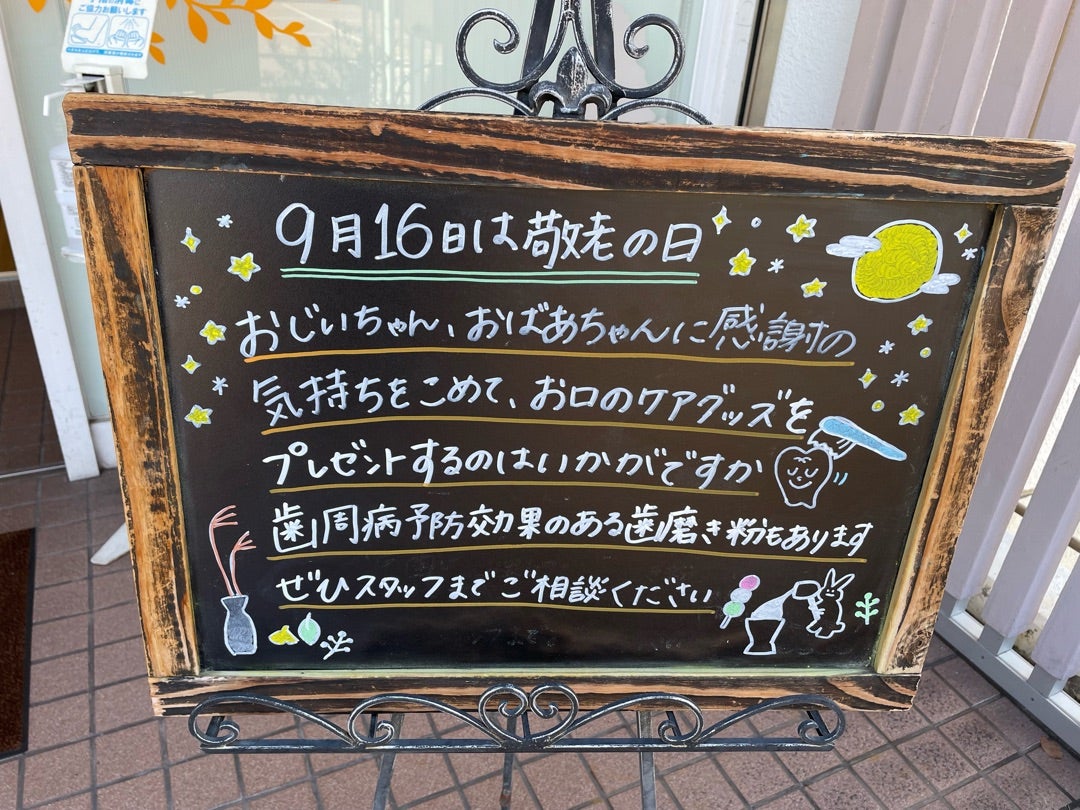 ご協力お願いします
9月16日は敬老の日
おじいちゃん、おばあちゃんに感謝の
気持ちをこめて、お口のケアグッズを
プレゼントするのはいかがですか
歯周病予防効果のある歯磨き粉もあります
ぜひスタッフまでご相談ください